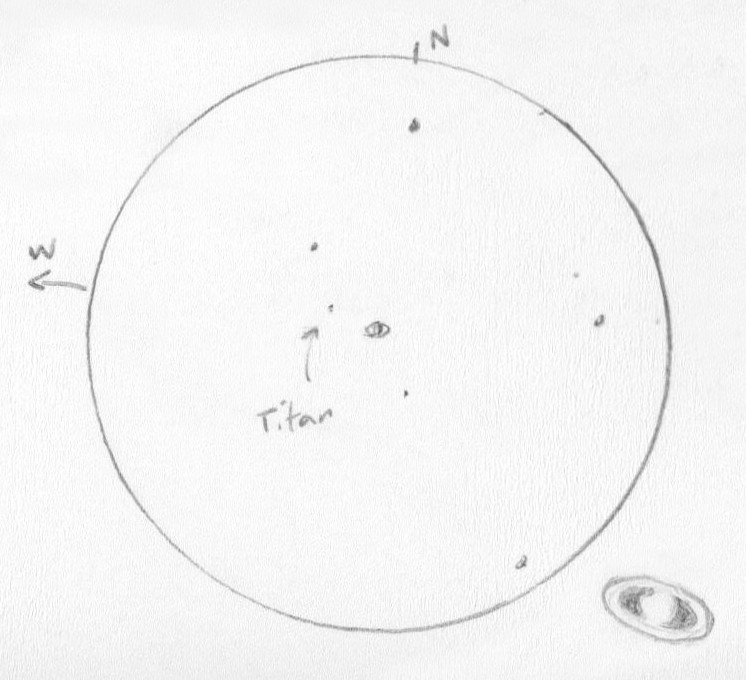 N
W
Titan